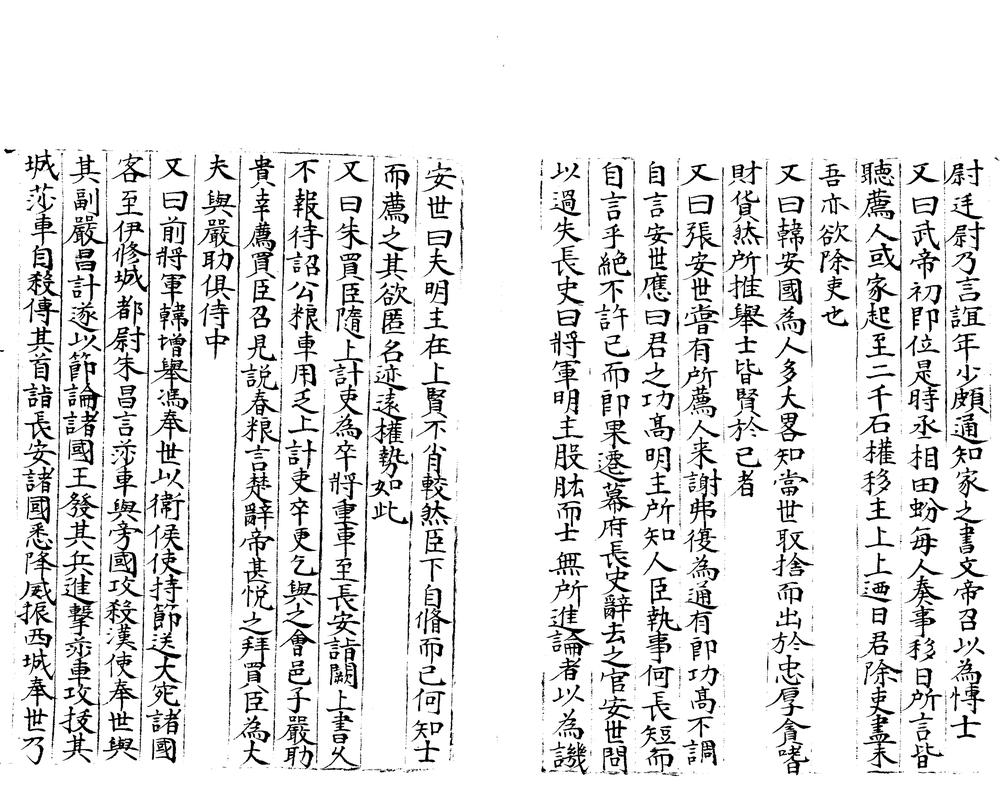 尉廷尉乃言誼年少頗通知家之書文帝召以為愽士
又曰武帝初即位是時丞相田蚡每人奏事移日所言皆
聽薦人或家起至二千石權移主上上迺曰君除吏盡未
吾亦欲除吏也
又曰韓安國為人多大畧知當世取捨而出於忠厚貪嗜
財貨然所推舉士皆賢於己者
又曰張安世嘗有所薦人来謝弗復為通有郎功高不調
自言安世應曰君之功高明主所知人臣執事何長短而
自言乎絶不許已而郎果遷幕府長史辭去之官安世問
以過失長史曰將軍明主股肱而士無所進論者以為譏
安世曰夫明主在上賢不肖較然臣下自脩而已何知士
而薦之其欲匿名迹遠權勢如此
又曰朱買臣隨上計吏為卒將重車至長安詣闕上書久
不報待詔公粮車用乏上計吏卒更乞與之會邑子嚴助
貴幸薦買臣召見説春粮言楚辭帝甚悦之拜買臣為大
夫與嚴助俱侍中
又曰前將軍韓增舉馮奉世以衛侯使持節送大宛諸國
客至伊修城都尉朱昌言莎車與旁國攻殺漢使奉世與
其副嚴昌計遂以節論諸國王發其兵進擊莎車攻技其
城莎車自殺傳其首詣長安諸國悉降威振西城奉世乃